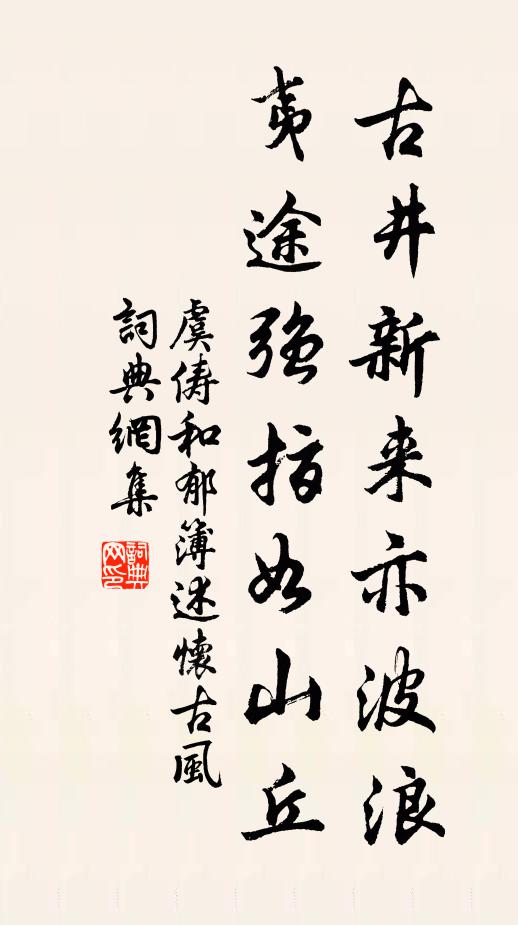 古井新来亦波浪
夷途強指如山丘
虞俦和郁簿述懷古風
詞典網集
詞典网印